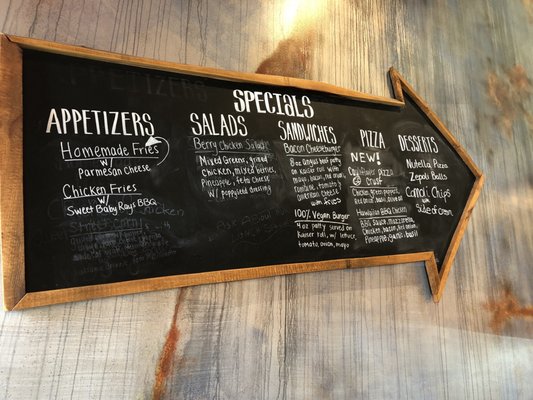 SPECIALS
APPETIZERS
Homemade Fries
w/
Parmesan Cheese
Chicken Fries
w/
Sweet Baby Rays BBQ
SALADS
Berry Chicken Salad
Mixed Greens, grilled
chicken, mixed berries,
Pineapple, feta cheese
w/ poppyseed dressing
SANDWICHES
Bacon Cheeseburger
8oz angus beef patty
on Kaiser roll with
mayo, bacon, red onion,
tomato, &
american cheese
w/ fries
100% Vegan Burger
4oz patty served on
Kaiser roll, w/ lettuce,
tomato, onion, mayo
PIZZA
NEW!
Cauliflower
crust
Chicken, peppers,
red onion, basil
Hawaiian BBQ Chicken
BBQ sauce, mozzarella,
Chicken, bacon, red onion,
Pineapple, basil
DESSERTS
Nutella Pizza
Zepoli Balls
Canoli Chips
w/
Side of cream